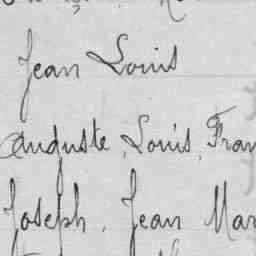 Jean Louis
Auguste, Louis, Fran
Joseph, Jean Mar